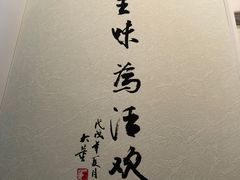 至味為清欢
戊戌年夏月
大董